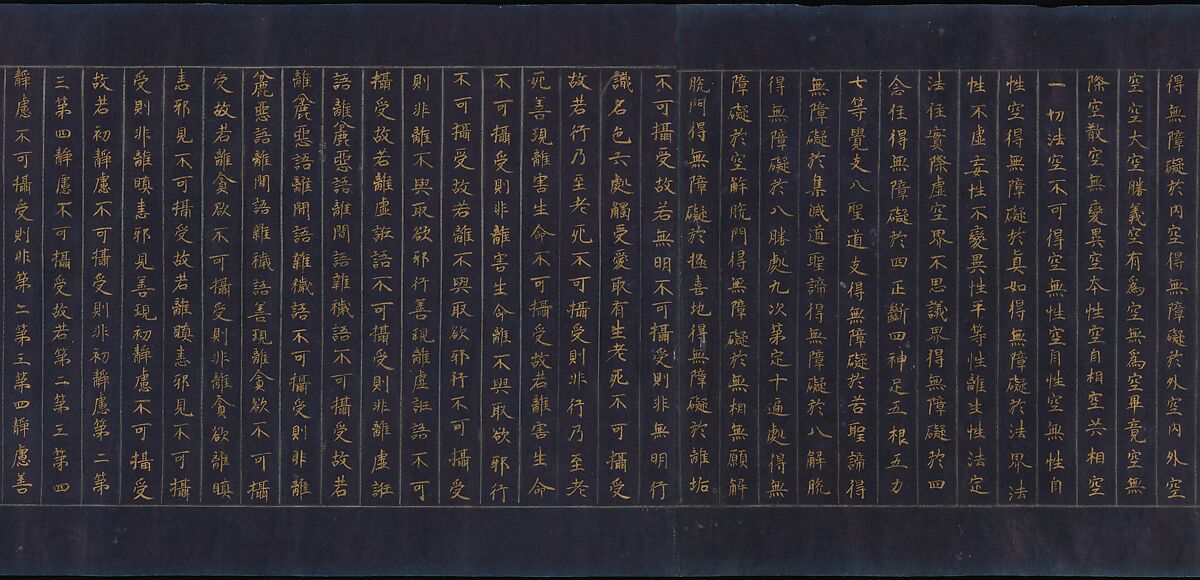 得無障礙於內空得無障礙於外空內外空
空空大空勝義空有為空無為空畢竟空無
際空散空無變異空本性空自相空共相空
一切法空不可得空無性空自性空無性自
性空得無障礙於真如得無障礙於法界法
性不虛妄性不變異性平等性離生性法定
法住實際虛空界不思議界得無障礙於四
念住得無障礙於四正斷四神足五根五力
七等覺支八聖道支得無障礙於苦聖諦得
無障礙於集滅道聖諦得無障礙於八解脫
得無障礙於八勝處九次第定十遍處得無
障礙於空解脫門得無障礙於無相無願解
脫門得無障礙於極喜地得無障礙於離垢
不可攝受故若無明不可攝受則非無明行
識名色六處觸受愛取有生老死不可攝受
故若行乃至老死不可攝受則非行乃至老
死善現離害生命不可攝受故若離害生命
不可攝受則非離害生命離不與取欲邪行
不可攝受故若離不與取欲邪行不可攝受
則非離不與取欲邪行善現離虛誑語不可
攝受故若離虛誑語不可攝受則非離虛誑
語離麁惡語離間語離穢語不可攝受故若
離麁惡語離間語離穢語不可攝受則非離
麁惡語離間語離穢語善現離貪欲不可攝
受故若離貪欲不可攝受則非離貪欲離瞋
恚邪見不可攝受故若離瞋恚邪見不可攝
受則非離瞋恚邪見善現初靜慮不可攝受
故若初靜慮不可攝受則非初靜慮第二第
三第四靜慮不可攝受故若第二第三第四
靜慮不可攝受則非第二第三第四靜慮善